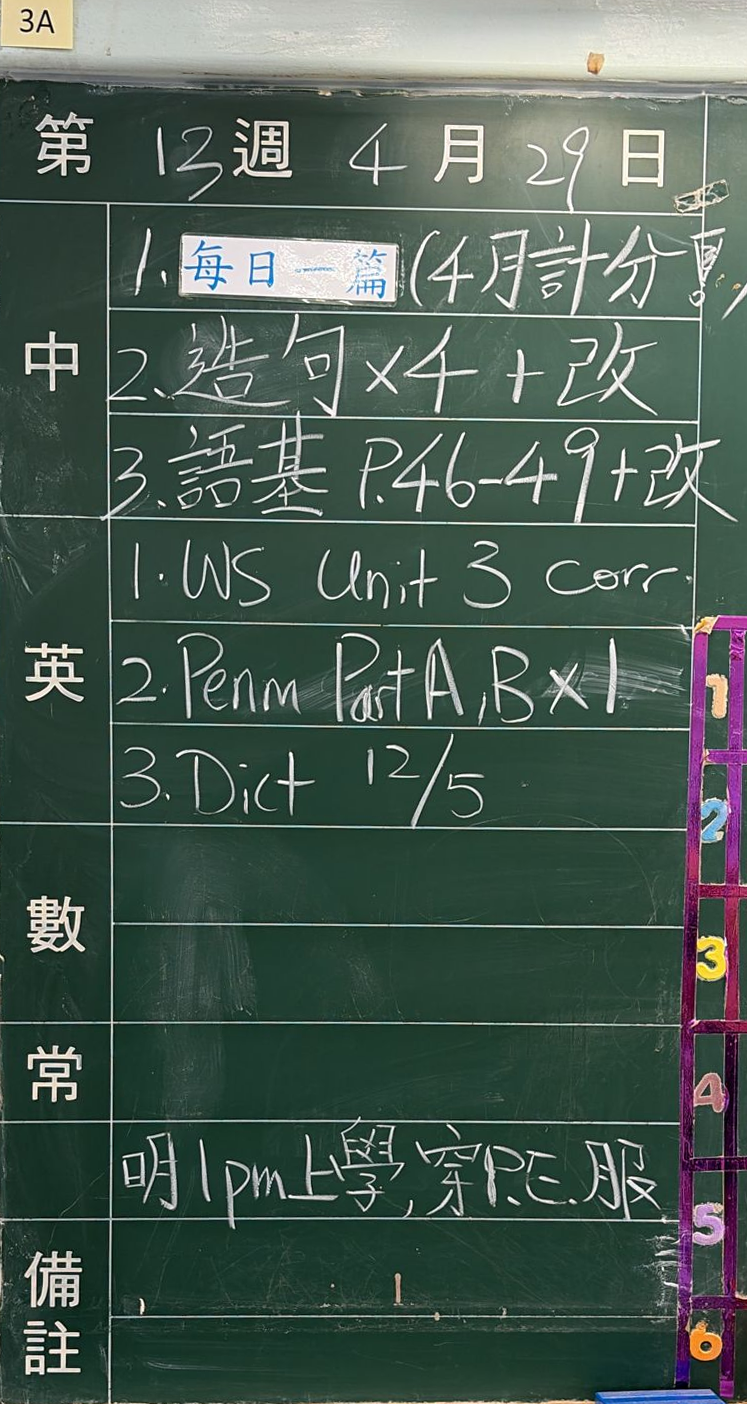 3A
第 13 週 4 月 29 日
中
1. 每日一篇 (4月計分!)
2. 造句 x4 + 改
3. 語基 P.46-49 + 改
英
1. WS Unit 3 corr.
2. Penm Part A, B x 1
3. Dict 12/5
數
常
明1pm上學, 穿P.E.服
備註
1
2
3
4
5
6